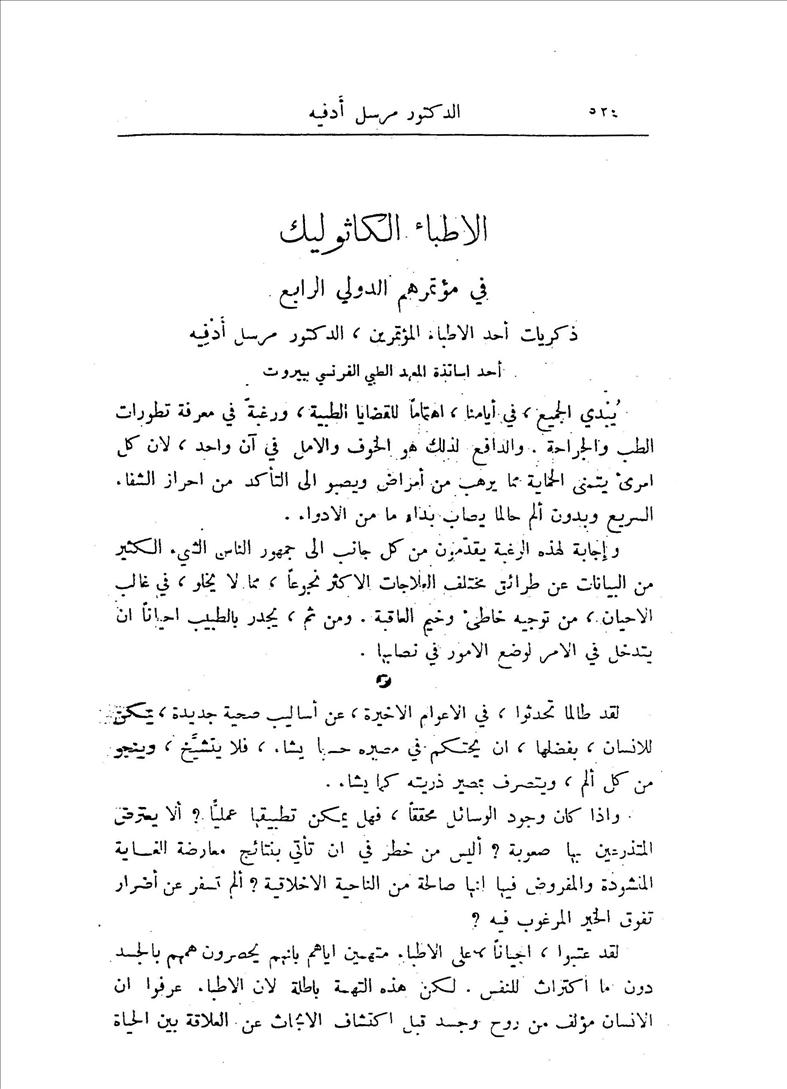 ٥٢٤ الدكتور مرسل أَدفيه
الاطباء الكاثوليك
في مؤتمرهم الدولي الرابع
ذكريات أحد الاطباء المؤتمرين ، الدكتور مرسل أَدْفِيه
أحد اساتذة المعهد الطبي الفرنسي ببيروت
يُبْدي الجميع ، في أيامنا ، اهتماماً للقضايا الطبية ، ورغبةً في معرفة تطورات
الطب والجراحة . والدافع لذلك هو الخوف والامل في آن واحد ، لان كل
امرئ يتمنى الحماية مما يرهب من أمراض ويصبو الى التأكد من احراز الشفاء
السريع وبدون ألم حالما يصاب بداء ما من الادواء .
وإجابة لهذه الرغبة يقدّمون من كل جانب الى جمهور الناس الشيء الكثير
من البيانات عن طرائق مختلف العلاجات الاكثر نجوعاً ، مما لا يخلو ، في غالب
الاحيان ، من توجيه خاطئ وخيم العاقبة . ومن ثم ، يجدر بالطبيب احياناً ان
يتدخل في الامر لوضع الامور في نصابها .
لقد طالما تحدثوا ، في الاعوام الاخيرة ، عن أساليب صحية جديدة ، يتمكن
للانسان ، بفضلها ، ان يحتكم في مصيره حسبا يشاء ، فلا يتشيَّخ ، وينجو
من كل ألم ، ويتصرف بمصير ذريته كما يشاء .
واذا كان وجود الوسائل محققاً ، فهل يمكن تطبيقها عمليًّا ? ألا يعترض
المتذرعين بها صعوبة ? أليس من خطر في ان تأتي بنتائج معارضة الغـاية
المنشودة والمفروض فيها انها صالحة من الناحية الاخلاقية ? ألم تسفر عن أضرار
تفوق الخير المرغوب فيه ?
لقد عتبوا ، احياناً ، على الاطباء متهمين اياهم بانهم يحصرون همهم بالجسد
دون ما اكتراث للنفس . لكن هذه التهمة باطلة لان الاطباء عرفوا ان
الانسان مؤلف من روح وجسد قبل اكتشاف الابحاث عن العلاقة بين الحياة